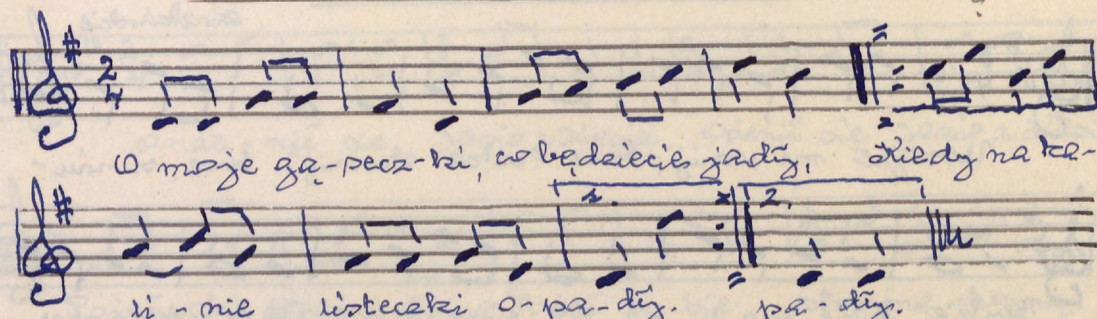 2
4
O moje gą-pecz-ki, co będziecie jadły, Kiedy na ka-
1. 2.
li - nie listeczki o-pa-dły. pa-dły.